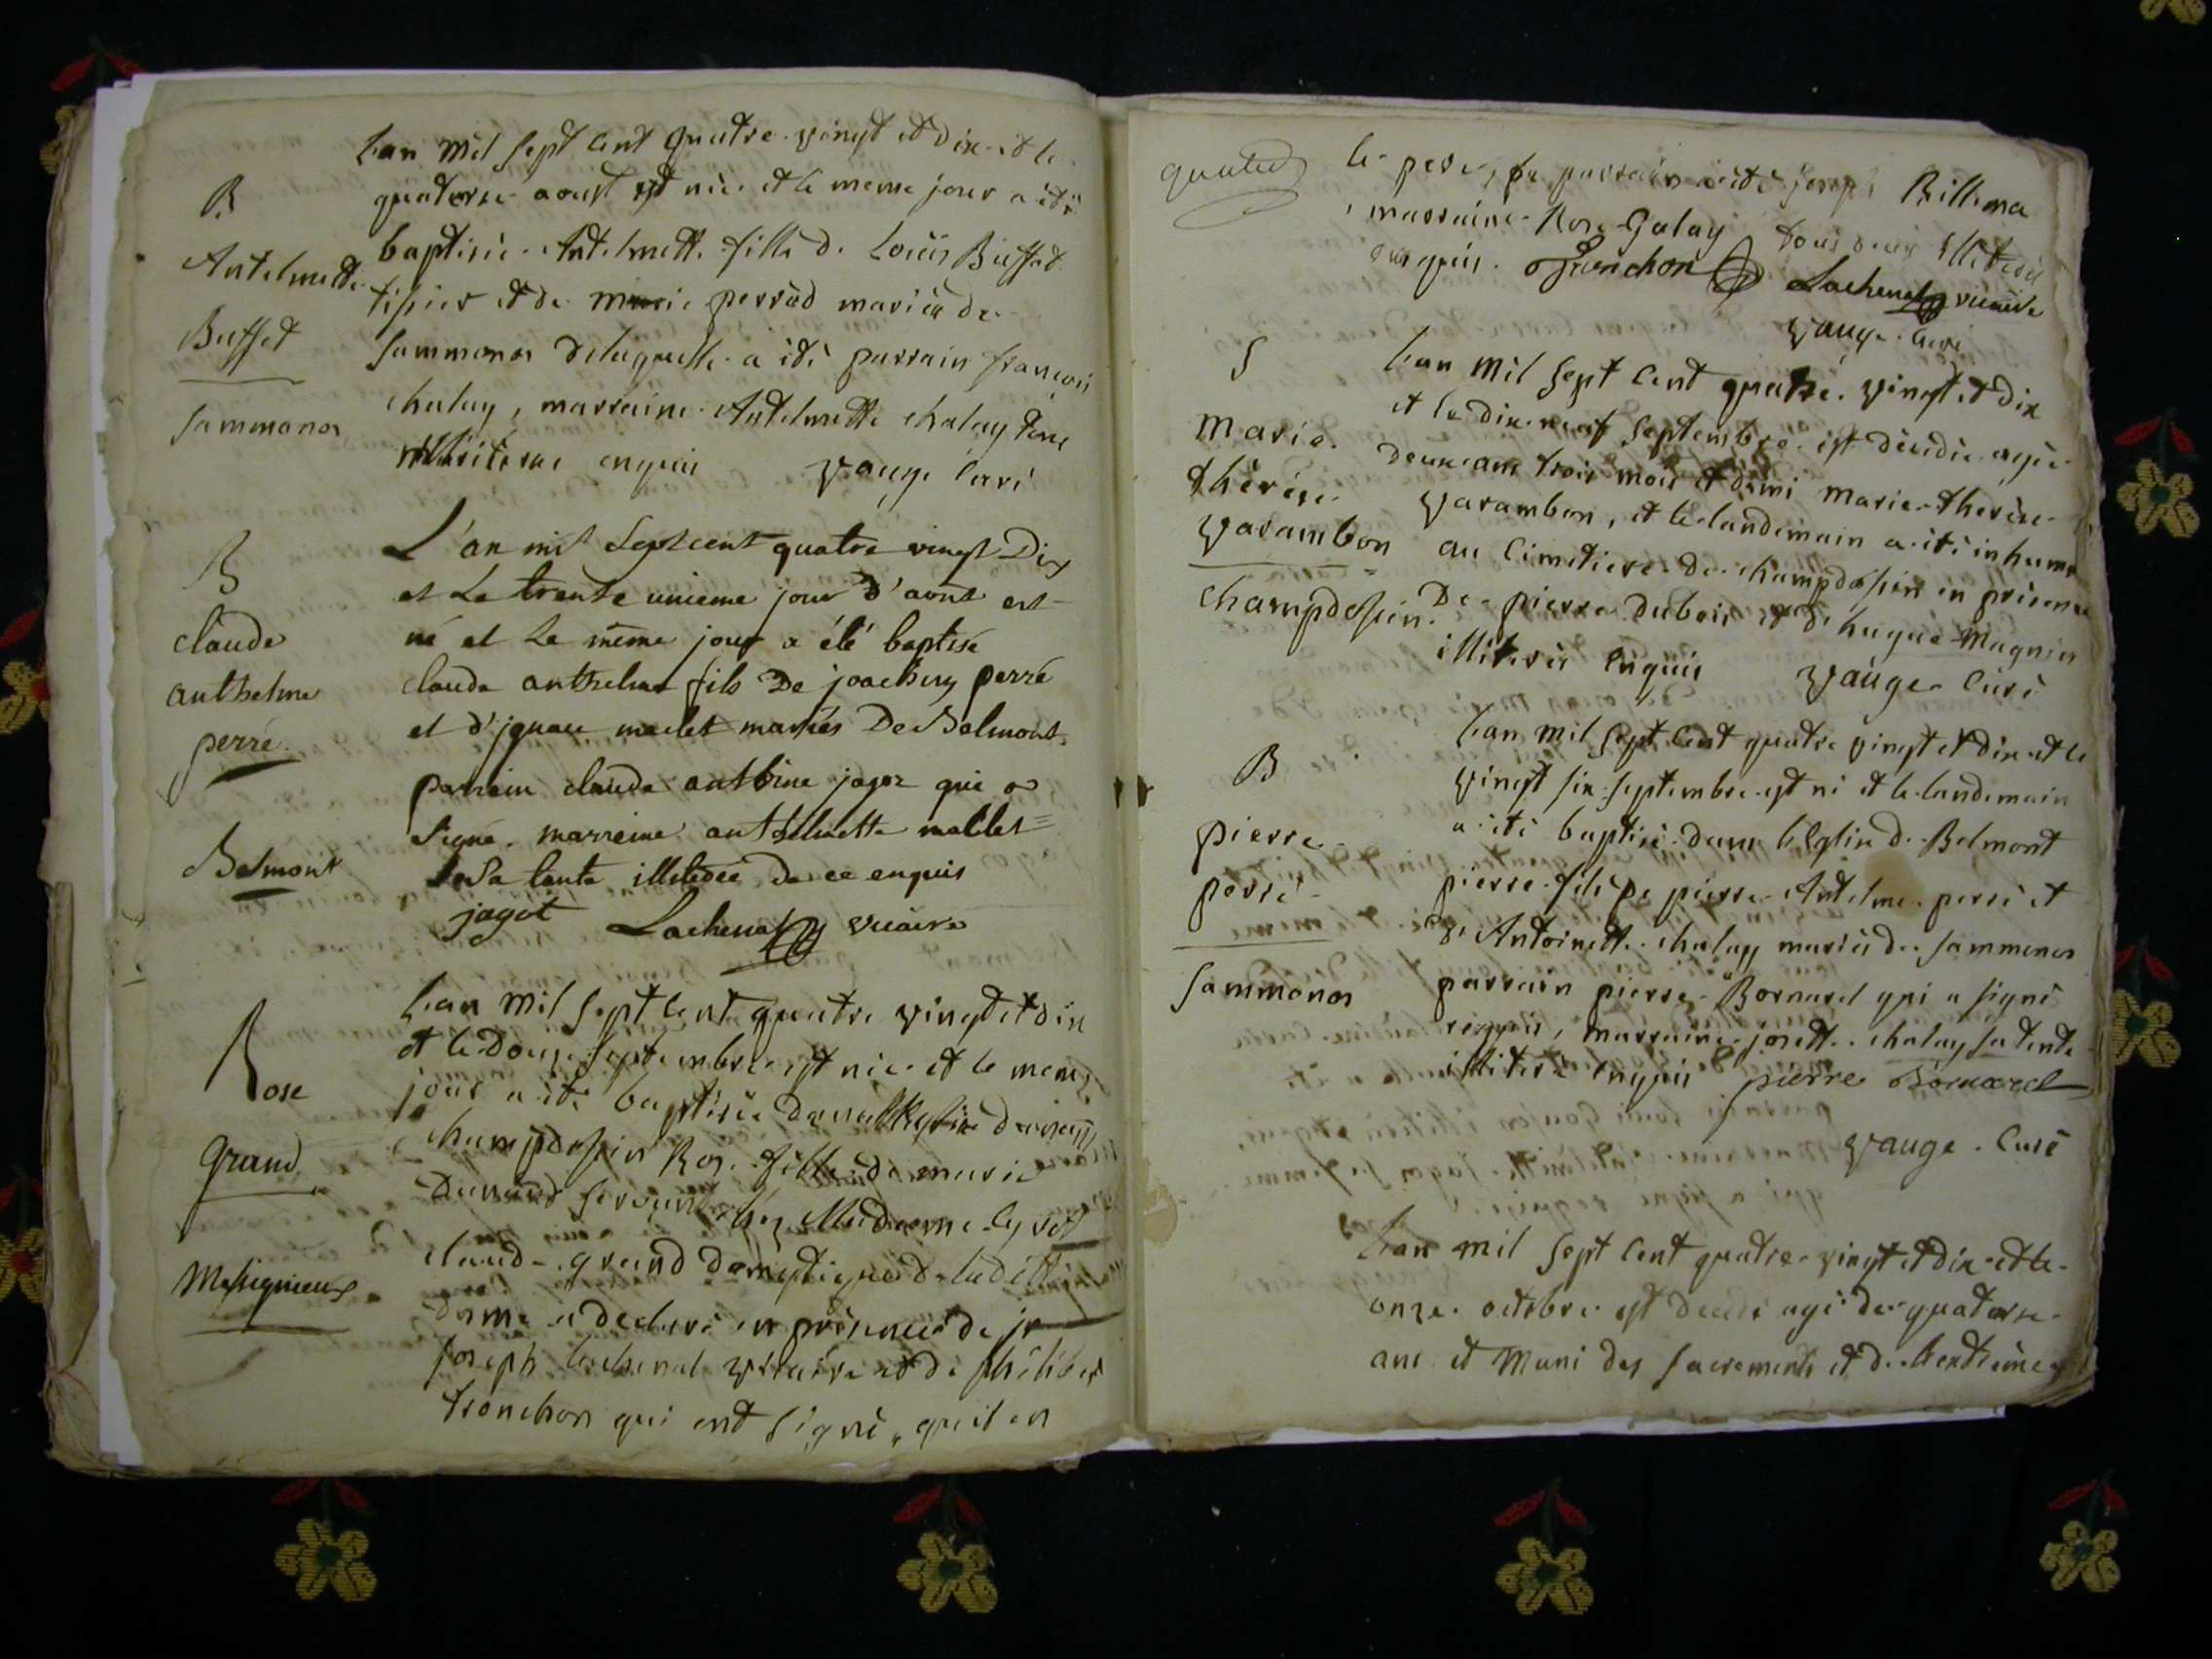 B
Antelmette
Buffet
Sammonos
L'an mil sept cent quatre-vingt et dix et le
quatorze aoust est née et le meme jour a été
baptisée Antelmette fille de Louis Buffet
tissier et de marie perrod mariés de
Sammonos delaquelle a été parrain françois
chalay, marraine Antelmette chalay tous
illitérés enquis Vauge Curé
B
claude
anthelme
perré
Belmont
L'an mil Sept cent quatre vingt Dix
et Le trente unieme jour d'aout est
né et Le même jour a été baptisé
claude anthelme fils De joachim perré
et d'ignace mallet mariés De Belmont
parrain claude anthelme jagot qui a
Signé. marreine anthelmette mallet
Sa tante illiterée de ce enquis
jagot Lachenal vicaire
Rose
Grand
Massignieux
L'an mil sept cent quatre vingt et dix
et le douze septembre est née et le meme
jour a été baptisée dans l'Eglise de
champdossin Rose fille de marie
Dunand servante chez Madame
claude grand domestique de ladite
dame a declaré en présence de
joseph Lachenal vicaire et de philibert
tronchon qui ont signé, qu'il en
le pere, parrain a été joseph Billema
marraine Rose Galay tous deux illiterés
enquis. Trunchon Lachenal vicaire
Vauge Curé
S
Marie
thérèse
Varambon
Champdossin
L'an mil sept cent quatre vingt et dix
et le dix neuf septembre est décédée agée
deux ans trois mois et demi marie-therèse
Varambon, et le landemain a été inhumée
au Cimetiere de champdossin en présence
De pierre Dubois et de hugue Magnin
illiterés Enquis Vauge Curé
B
pierre
perré
Sammonos
L'an mil sept cent quatre vingt et dix et le
vingt six septembre est né et le landemain
a été baptisé dans l'Eglise de Belmont
pierre fils de pierre Antelme perré et
d'Antoinette chalay mariés de Sammonos
parrain pierre Bornard qui a signé
requis, marraine josette chalay sa tante
illiterée Enquis pierre Bornard
Vauge. Curé
L'an mil sept cent quatre-vingt et dix et le
onze octobre est décédé agé de quatorse
ans et Muni des sacrements et de l'extreme